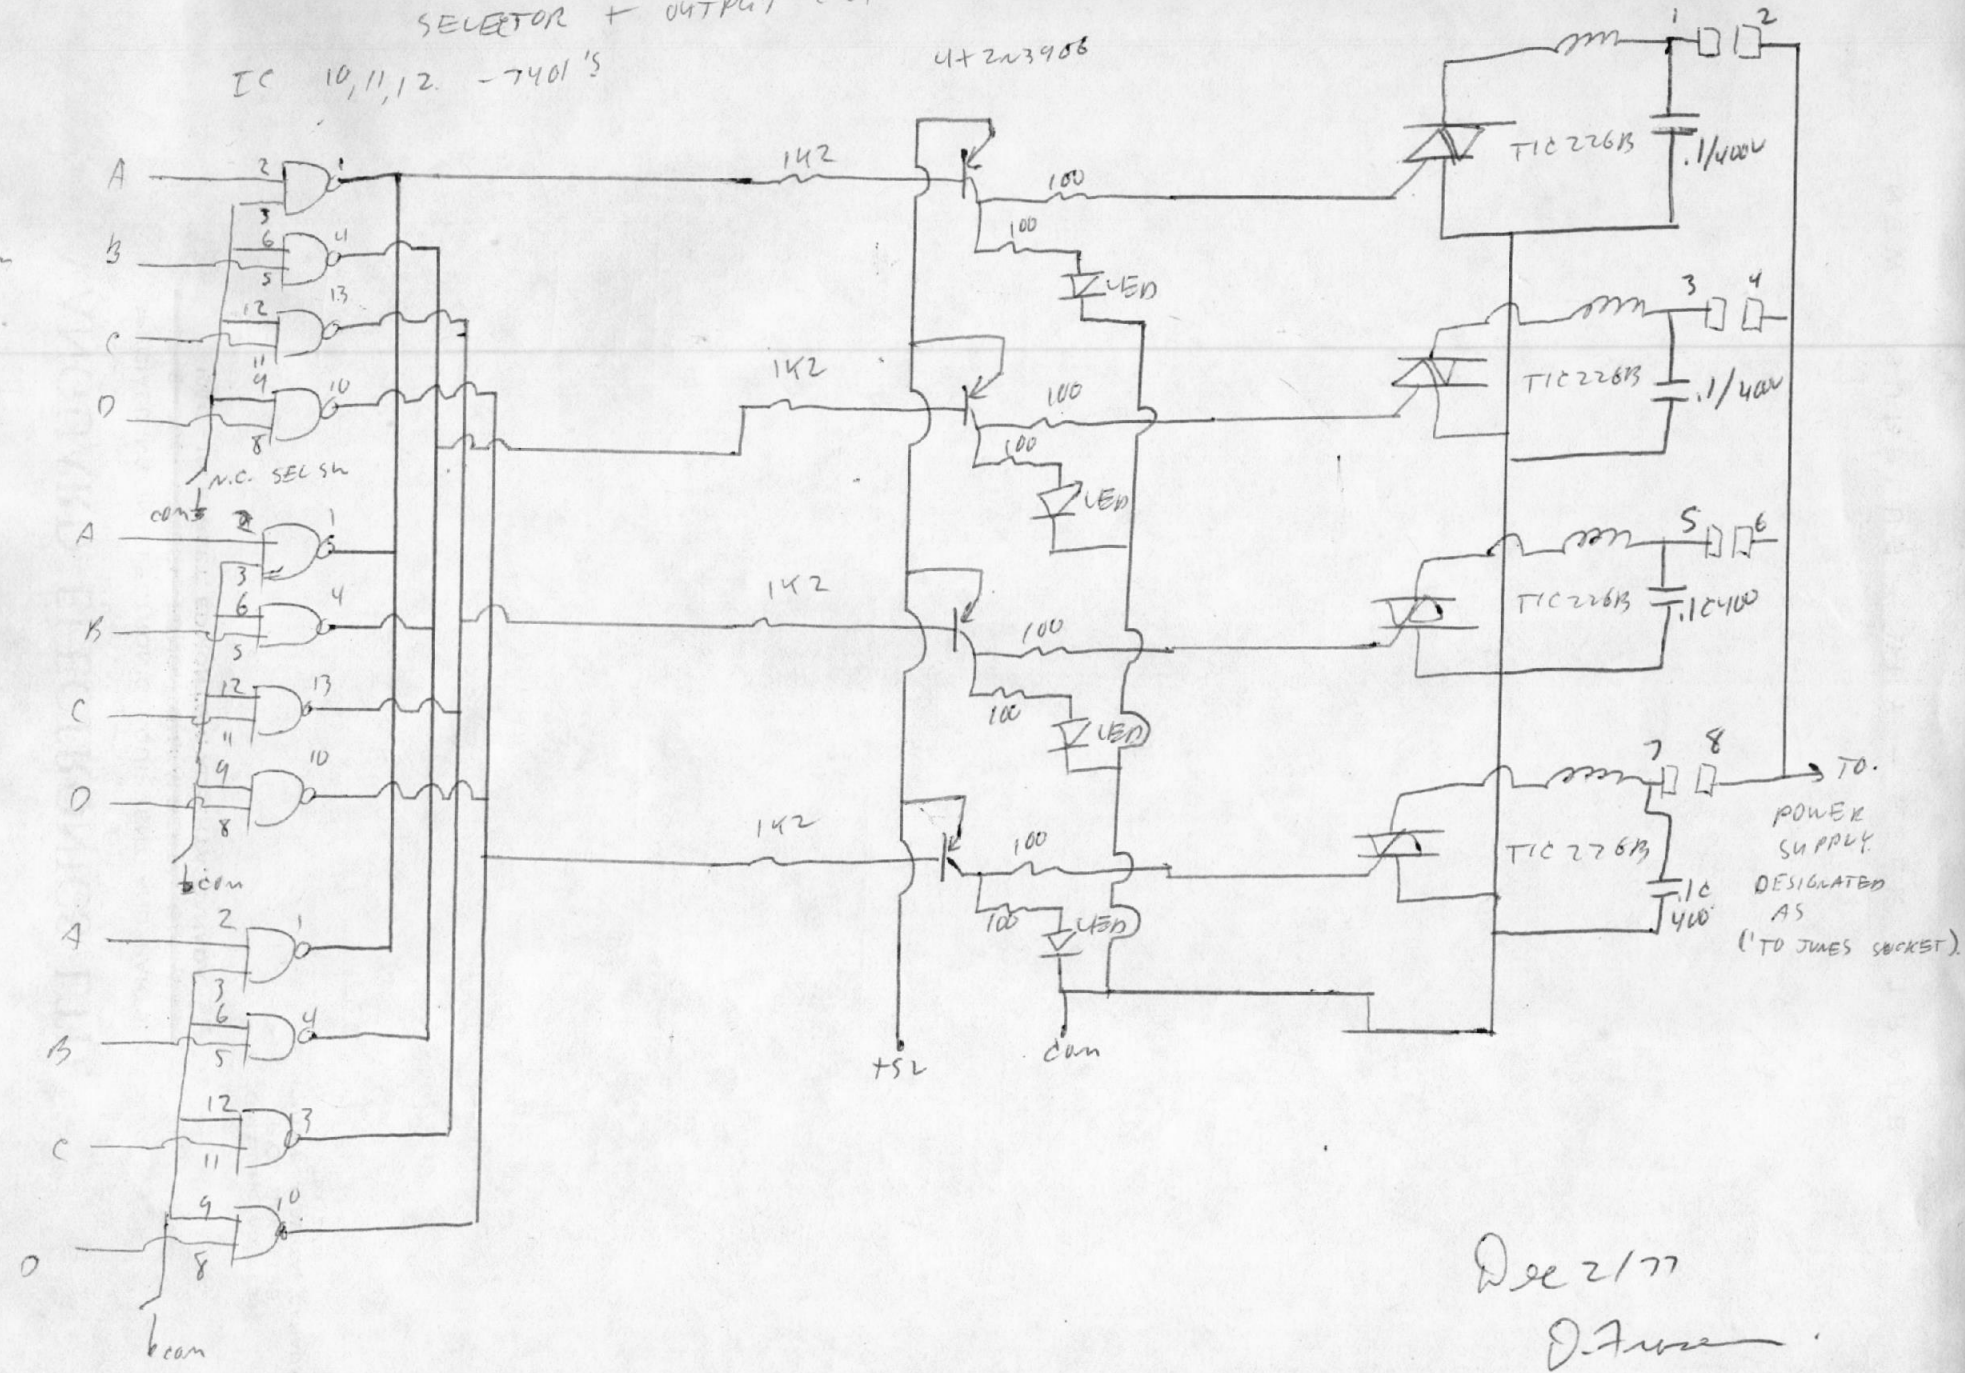 SELECTOR + OUTPUT
IC 10,11,12. - 7401's
4x2N3906
A 2 3 1
B 6 5 4
C 12 11 13
D 9 8 10
N.C. SEL SW
com
A 2 3 1
B 6 5 4
C 12 11 13
D 9 8 10
com
A 2 3 1
B 6 5 4
C 12 11 3
D 9 8 10
com
1K2 100 100 LED
1K2 100 100 LED
1K2 100 100 LED
1K2 100 100 LED
+5V
com
TIC226B .1/400V 1 2
TIC226B .1/400V 3 4
TIC226B .1C400 5 6
TIC226B .1C 400 7 8
TO.
POWER
SUPPLY
DESIGNATED
AS
('TO JONES SOCKET).
Dec 2/77